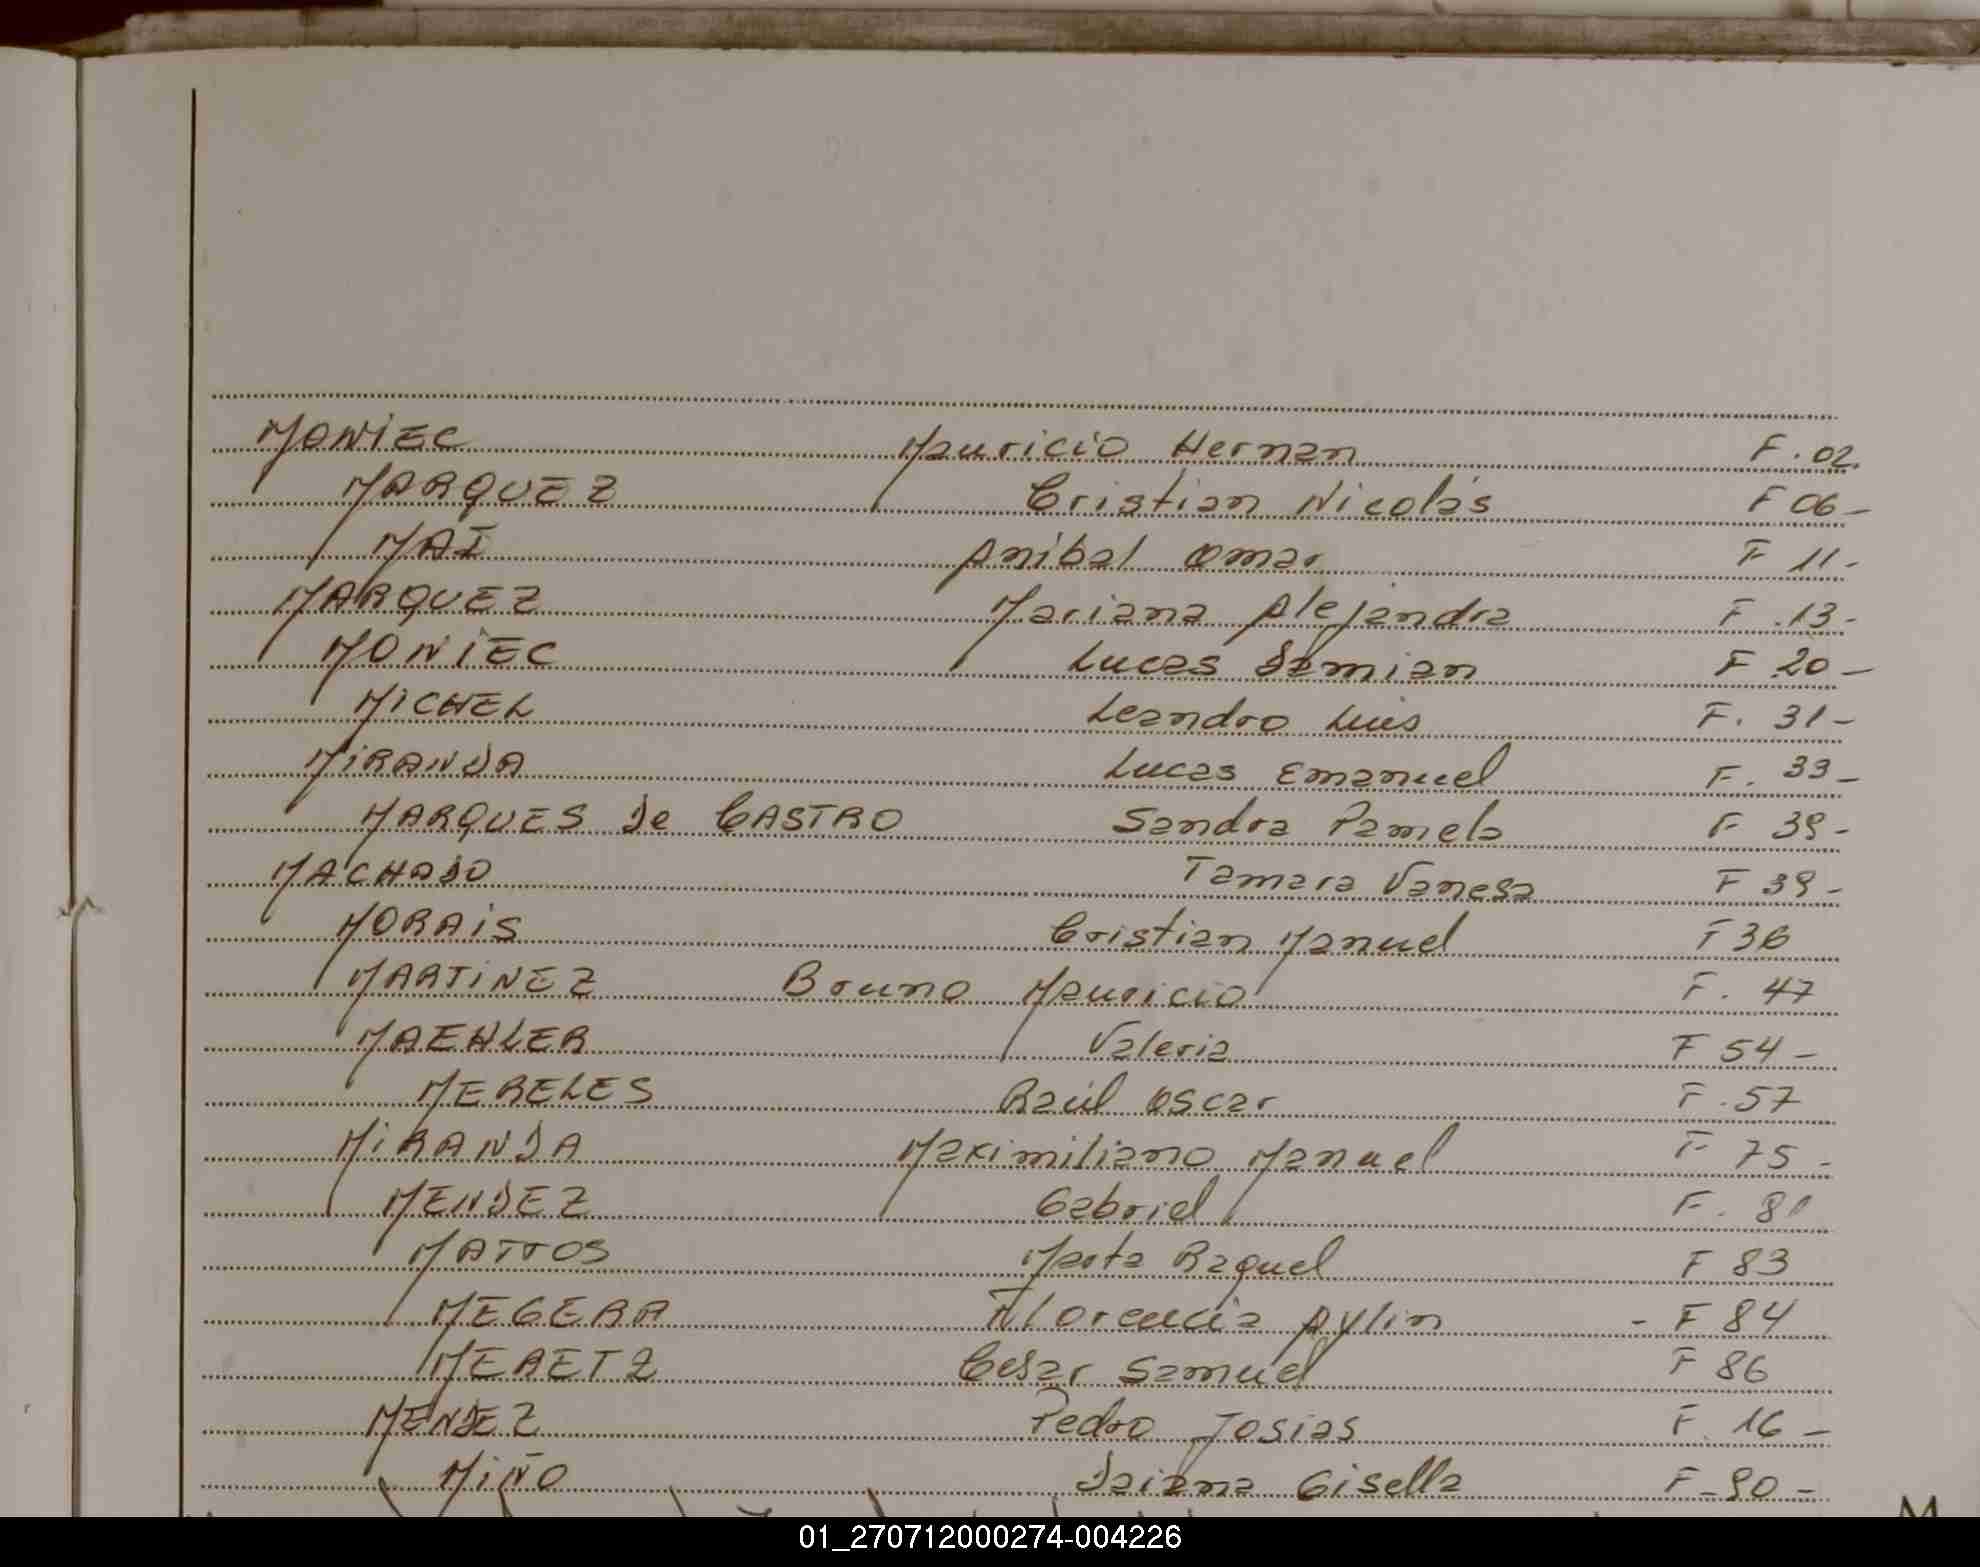 MONIEC Mauricio Hernan F. 02.
MARQUEZ Cristian Nicolás F 06-
MAI Anibal Omar F 11-
MARQUEZ Mariana Alejandra F .13-
MONIEC Lucas Damian F 20-
MICHEL Leandro Luis F. 31-
MIRANDA Lucas Emanuel F. 33-
MARQUES De CASTRO Sandra Pamela F 39-
MACHADO Tamara Vanesa F 39-
MORAIS Cristian Manuel F 36
MARTINEZ Bruno Mauricio F. 47
MAEHLER Valeria F 54-
MERELES Raúl Oscar F. 57
MIRANDA Maximiliano Manuel F 75-
MENDEZ Gabriel F. 81
MATTOS Marta Raquel F 83
MEGERR Florencia Aylin - F 84
MERETZ Cesar Samuel F 86
MENDEZ Pedro Josias F. 16-
MIÑO Daiana Gisella F-90-
01_270712000274-004226